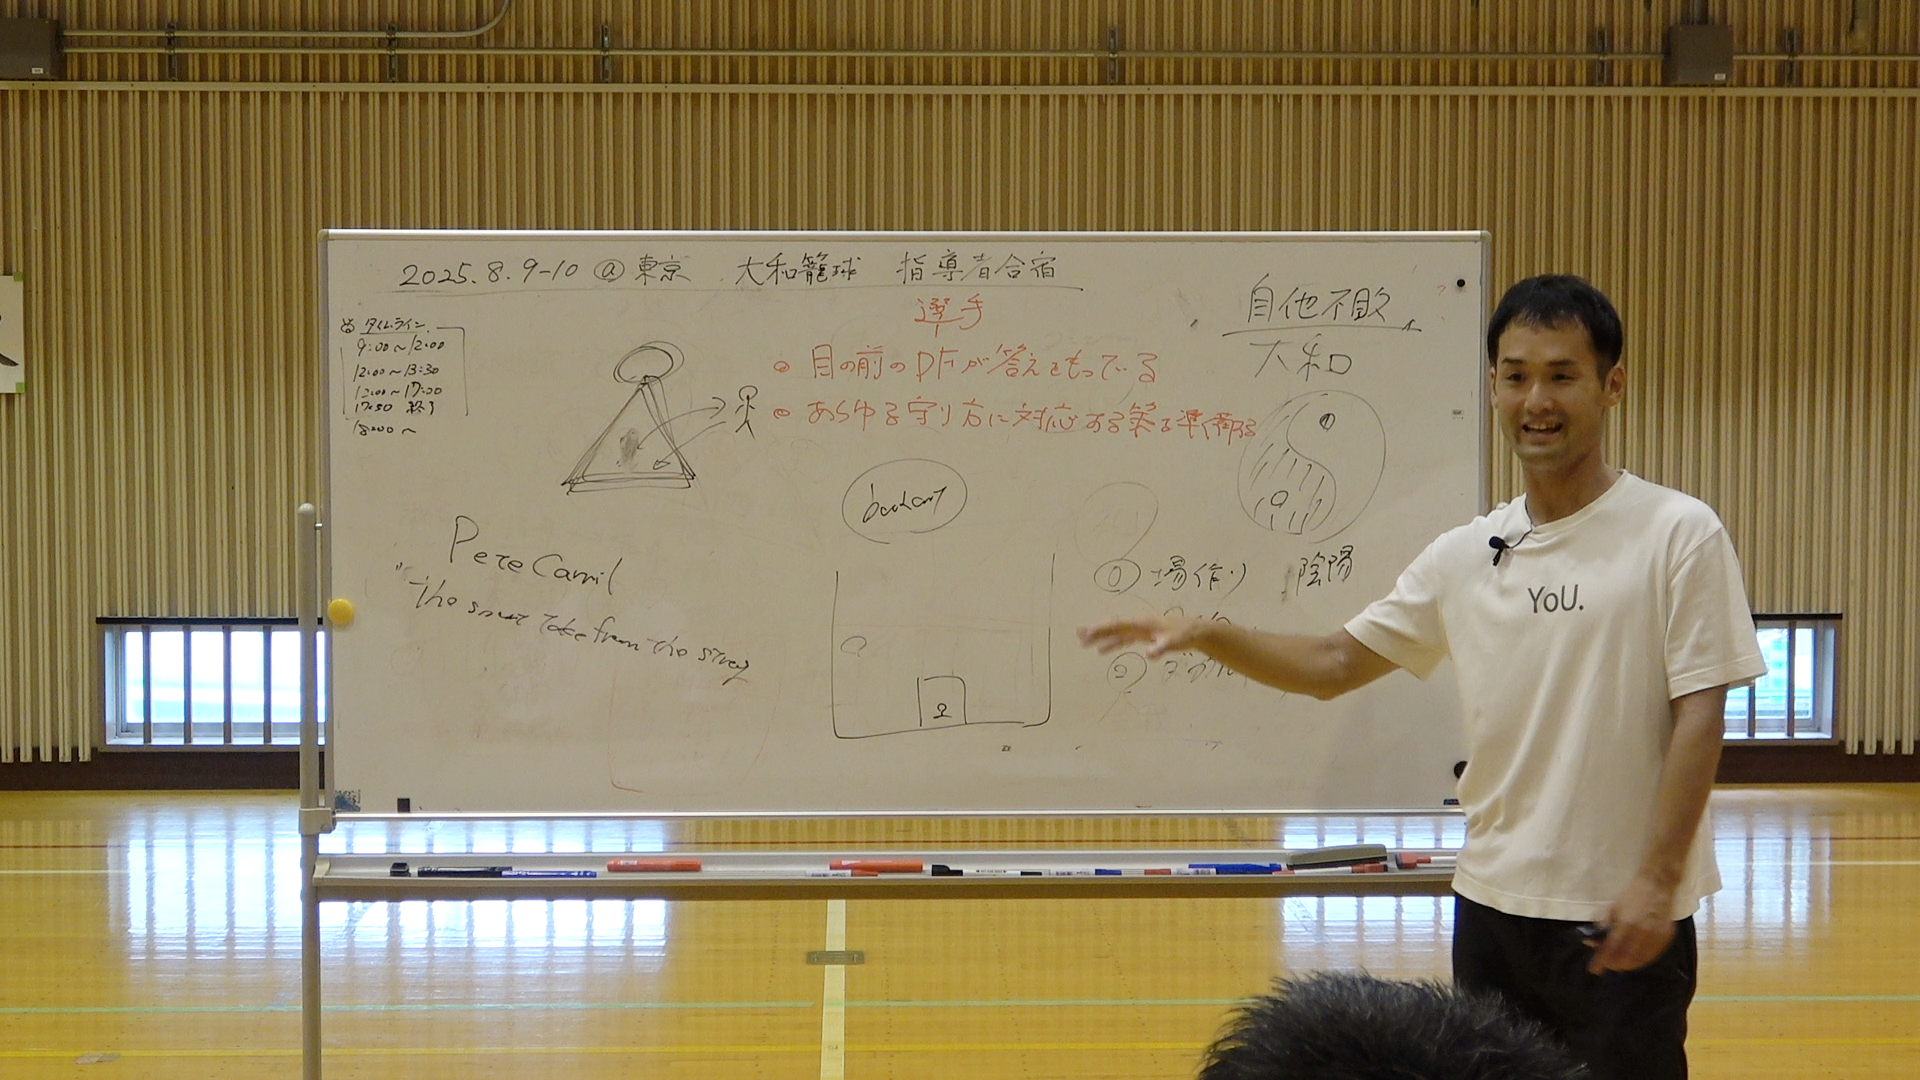 2025.8.9-10 @東京 大和籠球 指導者合宿
タイムライン
9:00~12:00
12:00~13:30
17:30 終了
18:00~
選手
目の前のDFが答えをもっている
あらゆる守り方に対応する策を準備する
自他不敗
大和
Pete Carril
"The smart take from the strong
① 場作り
陰陽
②
YoU.